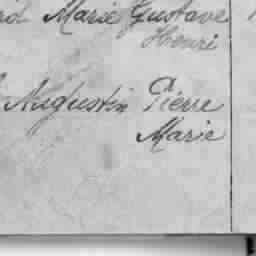 Marie Gustave
Henri
Augustin Pierre
Marie